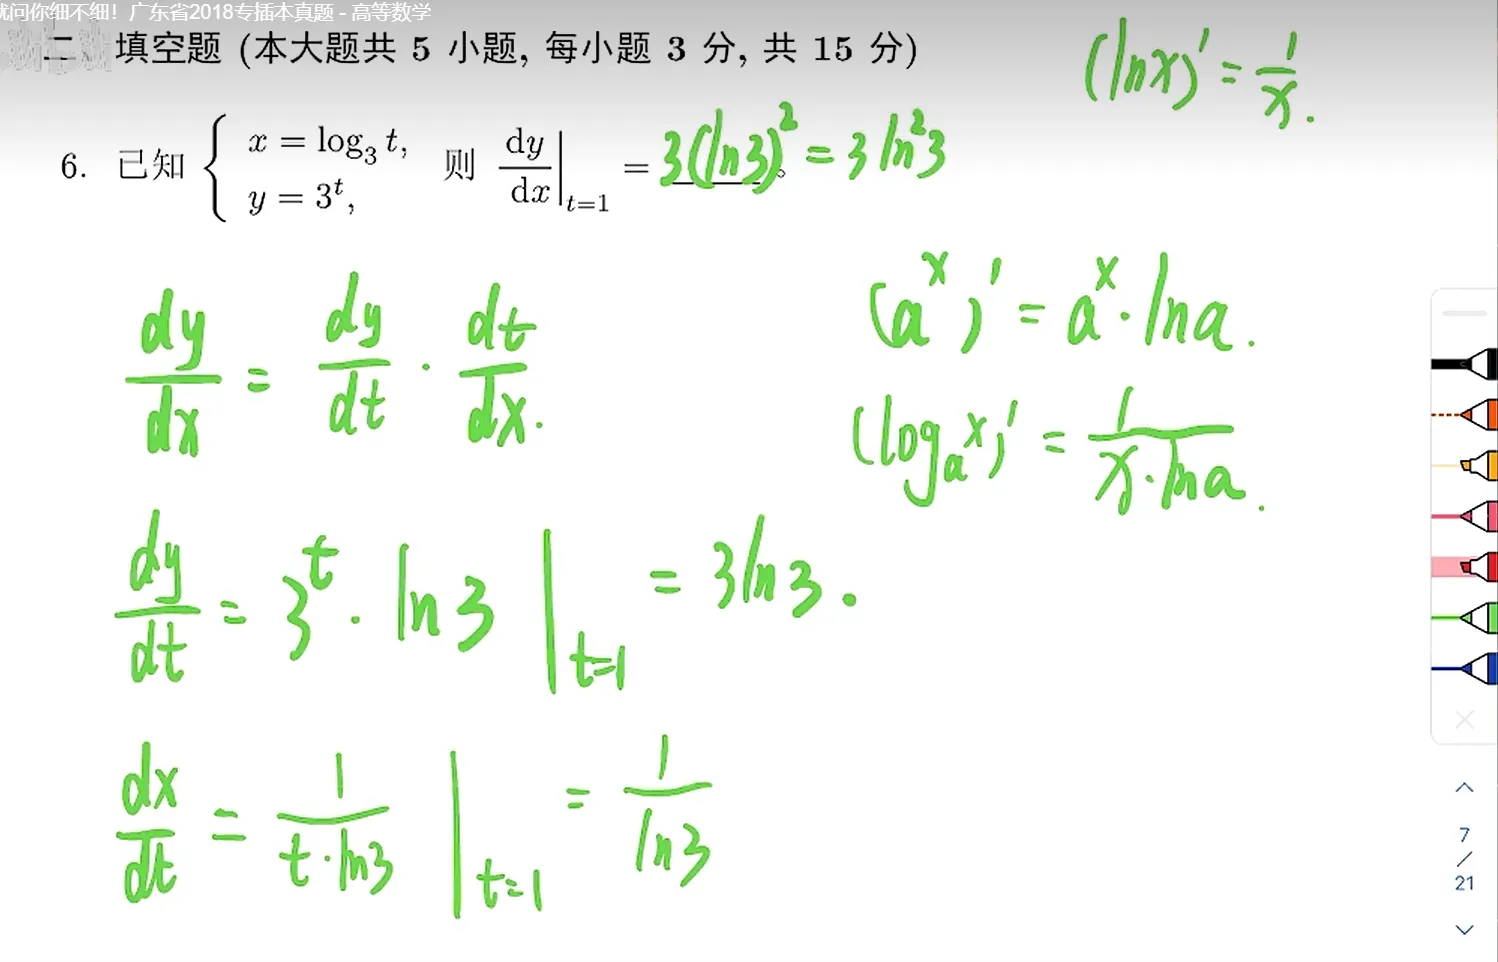 就问你细不细！广东省2018专插本真题 - 高等数学
二、填空题 (本大题共 5 小题, 每小题 3 分, 共 15 分)
(lnx)' = 1/x.
6. 已知 { x = log₃ t, y = 3ᵗ, 则 dy/dx |t=1 = 3(ln3)² = 3ln²3 。
dy/dx = dy/dt · dt/dx.
(aˣ)' = aˣ·lna.
(logₐx)' = 1/(x·lna).
dy/dt = 3ᵗ · ln3 |t=1 = 3ln3.
dx/dt = 1/(t·ln3) |t=1 = 1/ln3
7
/
21